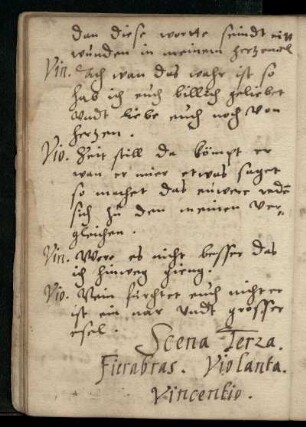 dan diese wortte seindt ein
wunden in meinem hertzen.
Vin. Ach wan das wahr ist so
hab ich euch billich geliebet
vndt liebe euch noch von
hertzen.
Vio. Seit still da kömpt er
wan er mier etwas saget
so machet das euwere rede
sich zu den meinen ver-
gleichen.
Vin. Were es nicht besser das
ich hinweg gieng.
Vio. Nein fürchtet euch nicht er
ist ein nar vndt grosser
esel.
Scena Terza.
Fierabras. Violanta.
Vincentio.